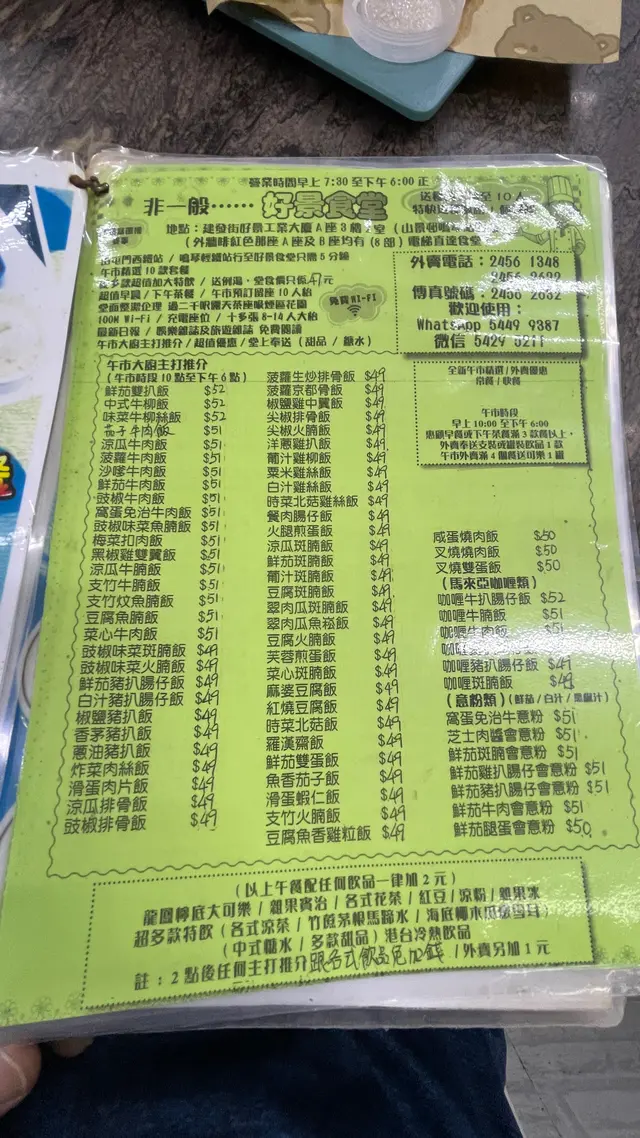 營業時間早上 7:30 至下午 6:00 正
非一般⋯⋯ 好景食堂
地點：建發街好景工業大廈 A 座 3 樓
(外牆啡紅色那座 A 座及 B 座均有 (8 部) 電梯直達食堂
屯門西鐵站 / 鳴琴輕鐵站行至好景食堂只需 5 分鐘
午市精選 10 款套餐
超值早晨 / 下午茶餐 / 午市預訂留座 10 人枱
免費 WI-FI
100M Wi-Fi / 充電座位 / 十多張 8-14 人大枱
最新日報 / 娛樂雜誌及旅遊雜誌 免費閱讀
午市大廚主打推介 / 超值優惠 / 堂上奉送 (甜品 / 糖水)
外賣電話：2456 1348
2456 2632
傳真號碼：2456 2632
歡迎使用：
WhatsApp 5449 9387
微信 5429 5211
全新午市精選/外賣優惠
常餐/快餐
午市時段
早上 10:00 至下午 6:00
惠顧早餐或下午茶餐滿 3 款餐以上，
外賣奉送支裝或罐裝飲品 1 款
午市外賣滿 4 個餐送可樂 1 罐
午市大廚主打推介
(午市時段 10 點至下午 6 點)
鮮茄雙扒飯 $52
中式牛柳飯 $52
味菜牛柳絲飯 $52
茄子牛肉飯 $51
涼瓜牛肉飯 $51
菠蘿牛肉飯 $51
沙嗲牛肉飯 $51
鮮茄牛肉飯 $51
豉椒牛肉飯 $51
窩蛋免治牛肉飯 $51
豉椒味菜魚腩飯 $51
梅菜扣肉飯 $51
黑椒雞雙翼飯 $51
涼瓜牛腩飯 $51
支竹牛腩飯 $51
支竹炆魚腩飯 $51
豆腐魚腩飯 $51
菜心牛肉飯 $51
豉椒味菜斑腩飯 $49
豉椒味菜火腩飯 $49
鮮茄豬扒腸仔飯 $49
白汁豬扒腸仔飯 $49
椒鹽豬扒飯 $49
香茅豬扒飯 $49
蔥油豬扒飯 $49
炸菜肉絲飯 $49
滑蛋肉片飯 $49
涼瓜排骨飯 $49
豉椒排骨飯 $49
菠蘿生炒排骨飯 $49
菠蘿京都骨飯 $49
椒鹽雞中翼飯 $49
尖椒排骨飯 $49
尖椒火腩飯 $49
洋蔥雞扒飯 $49
葡汁雞柳飯 $49
粟米雞絲飯 $49
白汁雞絲飯 $49
時菜北菇雞絲飯 $49
餐肉腸仔飯 $49
火腿煎蛋飯 $49
涼瓜斑腩飯 $49
鮮茄斑腩飯 $49
葡汁斑腩飯 $49
豆腐斑腩飯 $49
翠肉瓜斑腩飯 $49
翠肉瓜魚崧飯 $49
豆腐火腩飯 $49
芙蓉煎蛋飯 $49
菜心斑腩飯 $49
麻婆豆腐飯 $49
紅燒豆腐飯 $49
時菜北菇飯 $49
羅漢齋飯 $49
鮮茄雙蛋飯 $49
魚香茄子飯 $49
滑蛋蝦仁飯 $49
支竹火腩飯 $49
豆腐魚香雞粒飯 $49
咸蛋燒肉飯 $50
叉燒燒肉飯 $50
叉燒雙蛋飯 $50
(馬來亞咖喱類)
咖喱牛扒腸仔飯 $52
咖喱牛腩飯 $51
咖喱牛肉飯 $51
咖喱 $49
咖喱豬扒腸仔飯 $49
咖喱斑腩飯 $49
(意粉類) (鮮茄/白汁/黑椒汁)
窩蛋免治牛意粉 $51
芝士肉醬會意粉 $51
鮮茄斑腩會意粉 $51
鮮茄雞扒腸仔會意粉 $51
鮮茄豬扒腸仔會意粉 $51
鮮茄牛肉會意粉 $51
鮮茄腿蛋會意粉 $50
(以上午餐配任何飲品一律加 2 元)
龍鳳檸底大可樂 / 雜果賓治 / 各式花茶 / 紅豆 / 涼粉 / 雜果冰
超多款特飲 (各式涼茶 / 竹蔗茅根馬蹄水 / 海底椰木瓜燉雪耳)
(中式糖水 / 多款甜品) 港台冷熱飲品
註：2 點後任何主打推介跟各式飲品免加錢 / 外賣另加 1 元